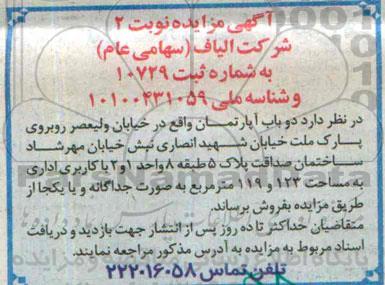 آگهی مزایده نوبت ۲
شرکت الیاف (سهامی عام)
به شماره ثبت ۱۰۷۲۹
و شناسه ملی ۱۰۱۰۰۴۳۱۰۵۹
در نظر دارد دو باب آپارتمان واقع در خیابان ولیعصر روبروی
پارک ملت خیابان شهید انصاری نبش خیابان مهرشاد
ساختمان صداقت پلاک ۵ طبقه ۸ واحد ۱و۲ با کاربری اداری
به مساحت ۱۲۳ و ۱۱۹ مترمربع به صورت جداگانه و یا یکجا از
طریق مزایده بفروش برساند.
متقاضیان حداکثر تا ده روز پس از انتشار جهت بازدید و دریافت
اسناد مربوط به مزایده به آدرس مذکور مراجعه نمایند.
تلفن تماس ۲۲۲۰۱۶۰۵۸